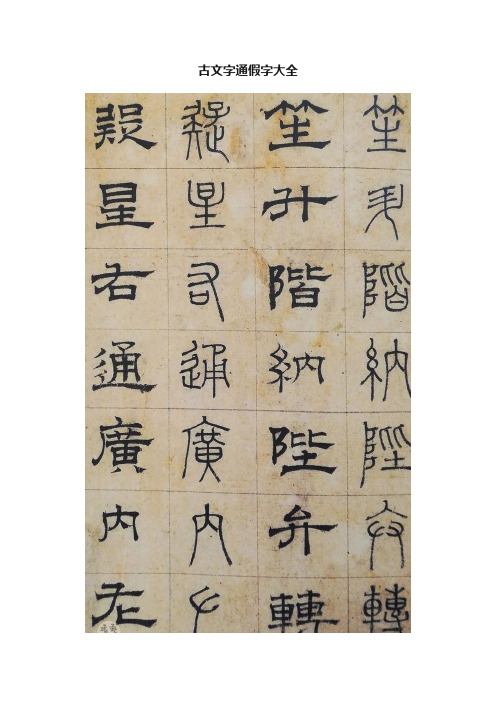 古文字通假字大全
笙升階納陛弁轉
笙升階納陛弁轉
疑星右通廣內左
疑星右通廣內左